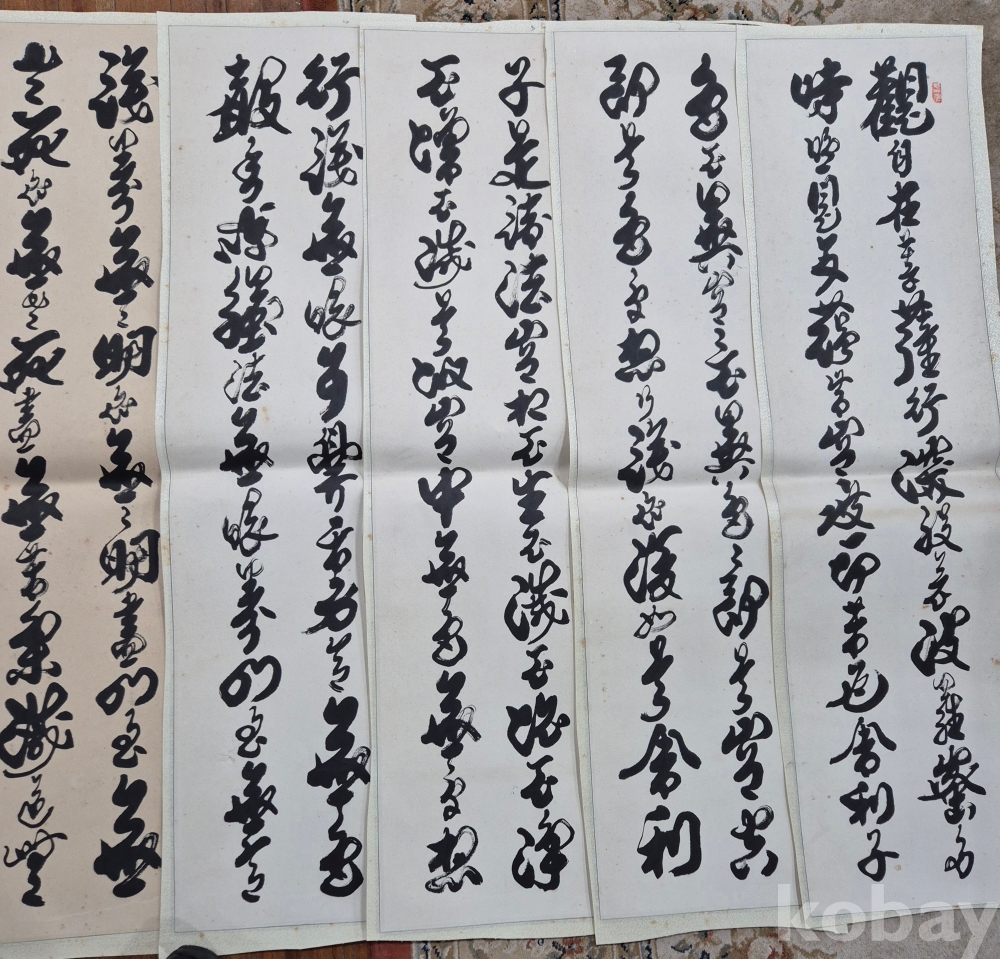 觀自在菩薩行深般若波羅蜜多
時照見五蘊皆空度一切苦厄舍利子
色不異空空不異色色卽是空空
卽是色受想行識亦復如是舍利
子是諸法空相不生不滅不垢不淨
不增不減是故空中無色無受想
行識無眼耳鼻舌身意無色
聲香味觸法無眼界乃至無意
識界無無明亦無無明盡乃至無
老死亦無老死盡無苦集滅道
kobay